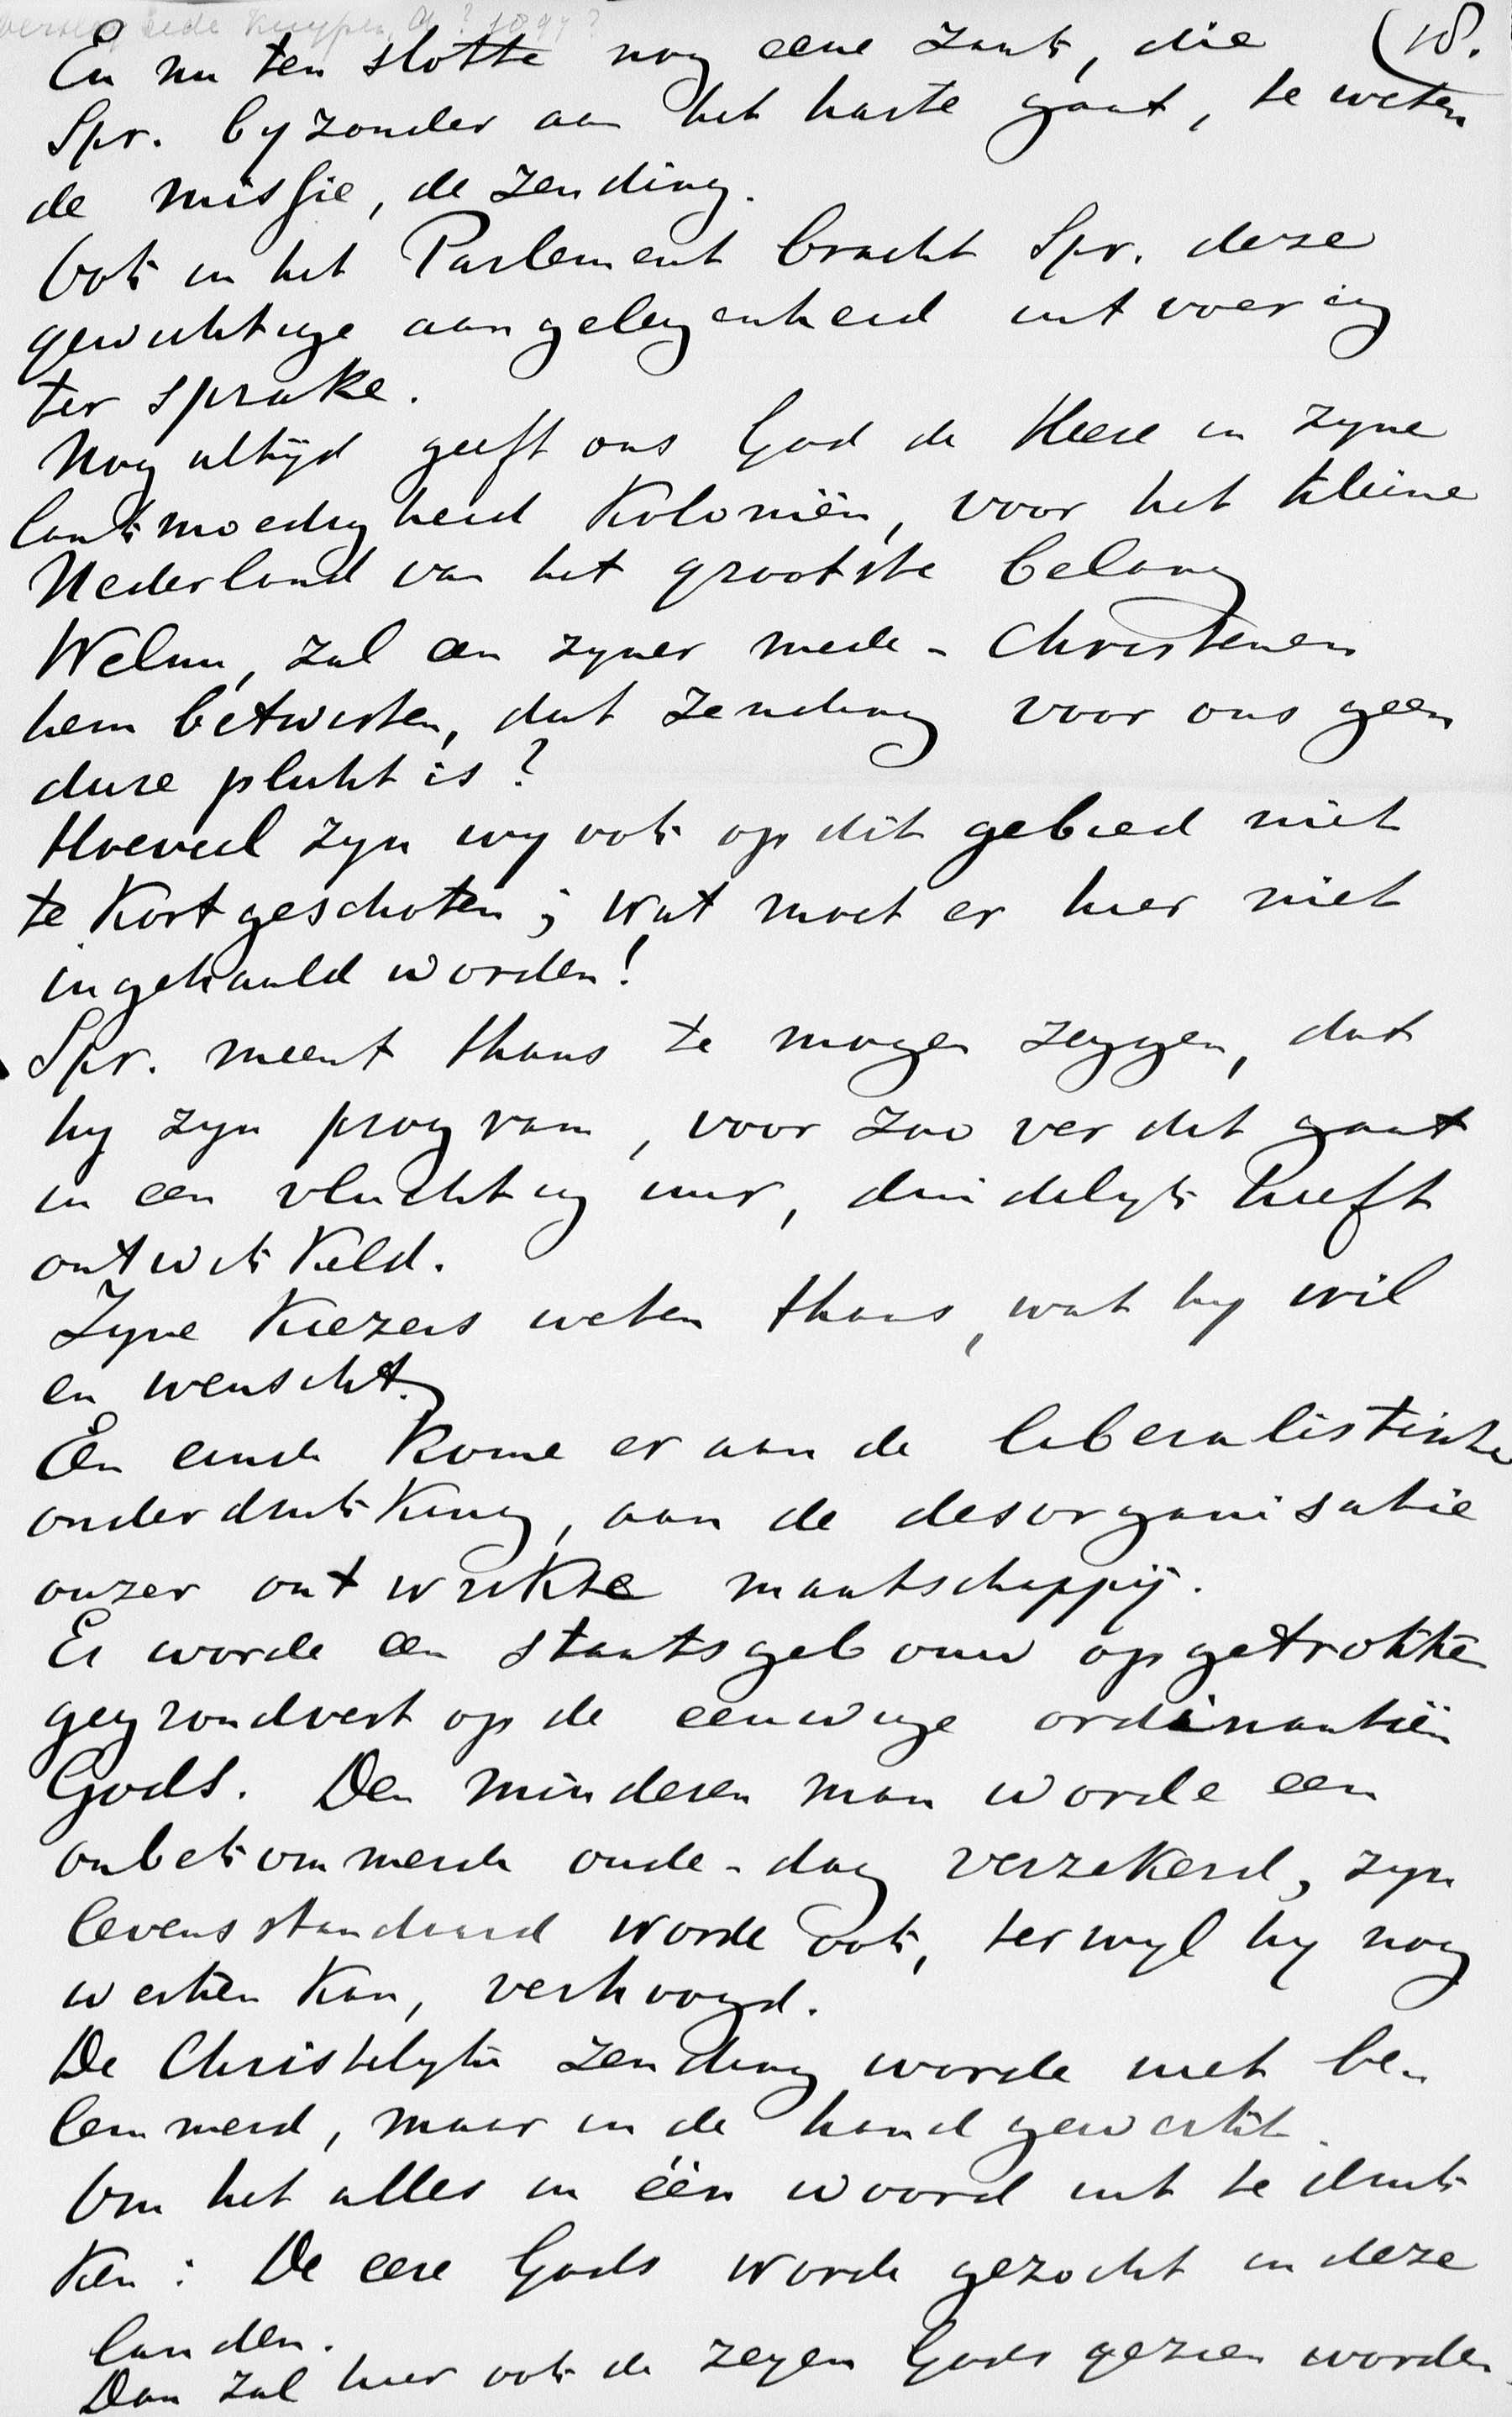 verslag rede Kuyper, A? 1894?
En nu ten slotte nog eene zaak, die (18.
Spr. byzonder aan het harte gaat, te weten
de missie, de zending.
Ook in het Parlement bracht Spr. deze
gewichtige aangelegenheid uitvoerig
ter sprake.
Nog altijd geeft ons God de Heere in zyne
lankmoedigheid Koloniën, voor het kleine
Nederland van het grootste belang
Welnu, zal een zyner mede-Christenen
hem betwisten, dat zending voor ons geen
dure plicht is?
Hoeveel zyn wy ook op dit gebied niet
te Kort geschoten; wat moet er hier niet
ingehaald worden!
Spr. meent thans te mogen zeggen, dat
hy zyn program, voor zoo ver dit gaat
in een vluchtig uur, duidelyk heeft
ontwikkeld.
Zyne Kiezers weten thans, wat hy wil
en wenscht.
Een einde Kome er aan de liberalistische
onderdrukking, aan de desorganisatie
onzer ontwrikte maatschappij.
Er worde een staatsgebouw opgetrokken
gegrondvest op de eeuwige ordinantiën
Gods. Den minderen man worde een
onbekommerde oude-dag verzekerd, zyn
levensstandaard worde ook, terwyl hy nog
werken Kan, verhoogd.
De Christelyke zending worde niet be-
lemmerd, maar in de hand gewerkt.
Om het alles in één woord uit te druk-
Ken: De eere Gods worde gezocht in deze
landen.
Dan zal hier ook de zegen Gods gezien worden.